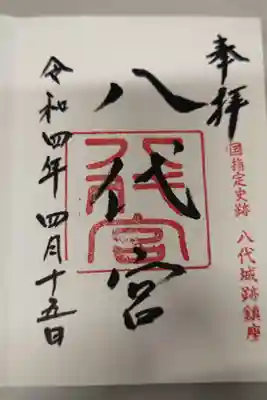 奉拝
国指定史跡
八代城跡鎮座
八代宮
八代宮
令和四年四月十五日